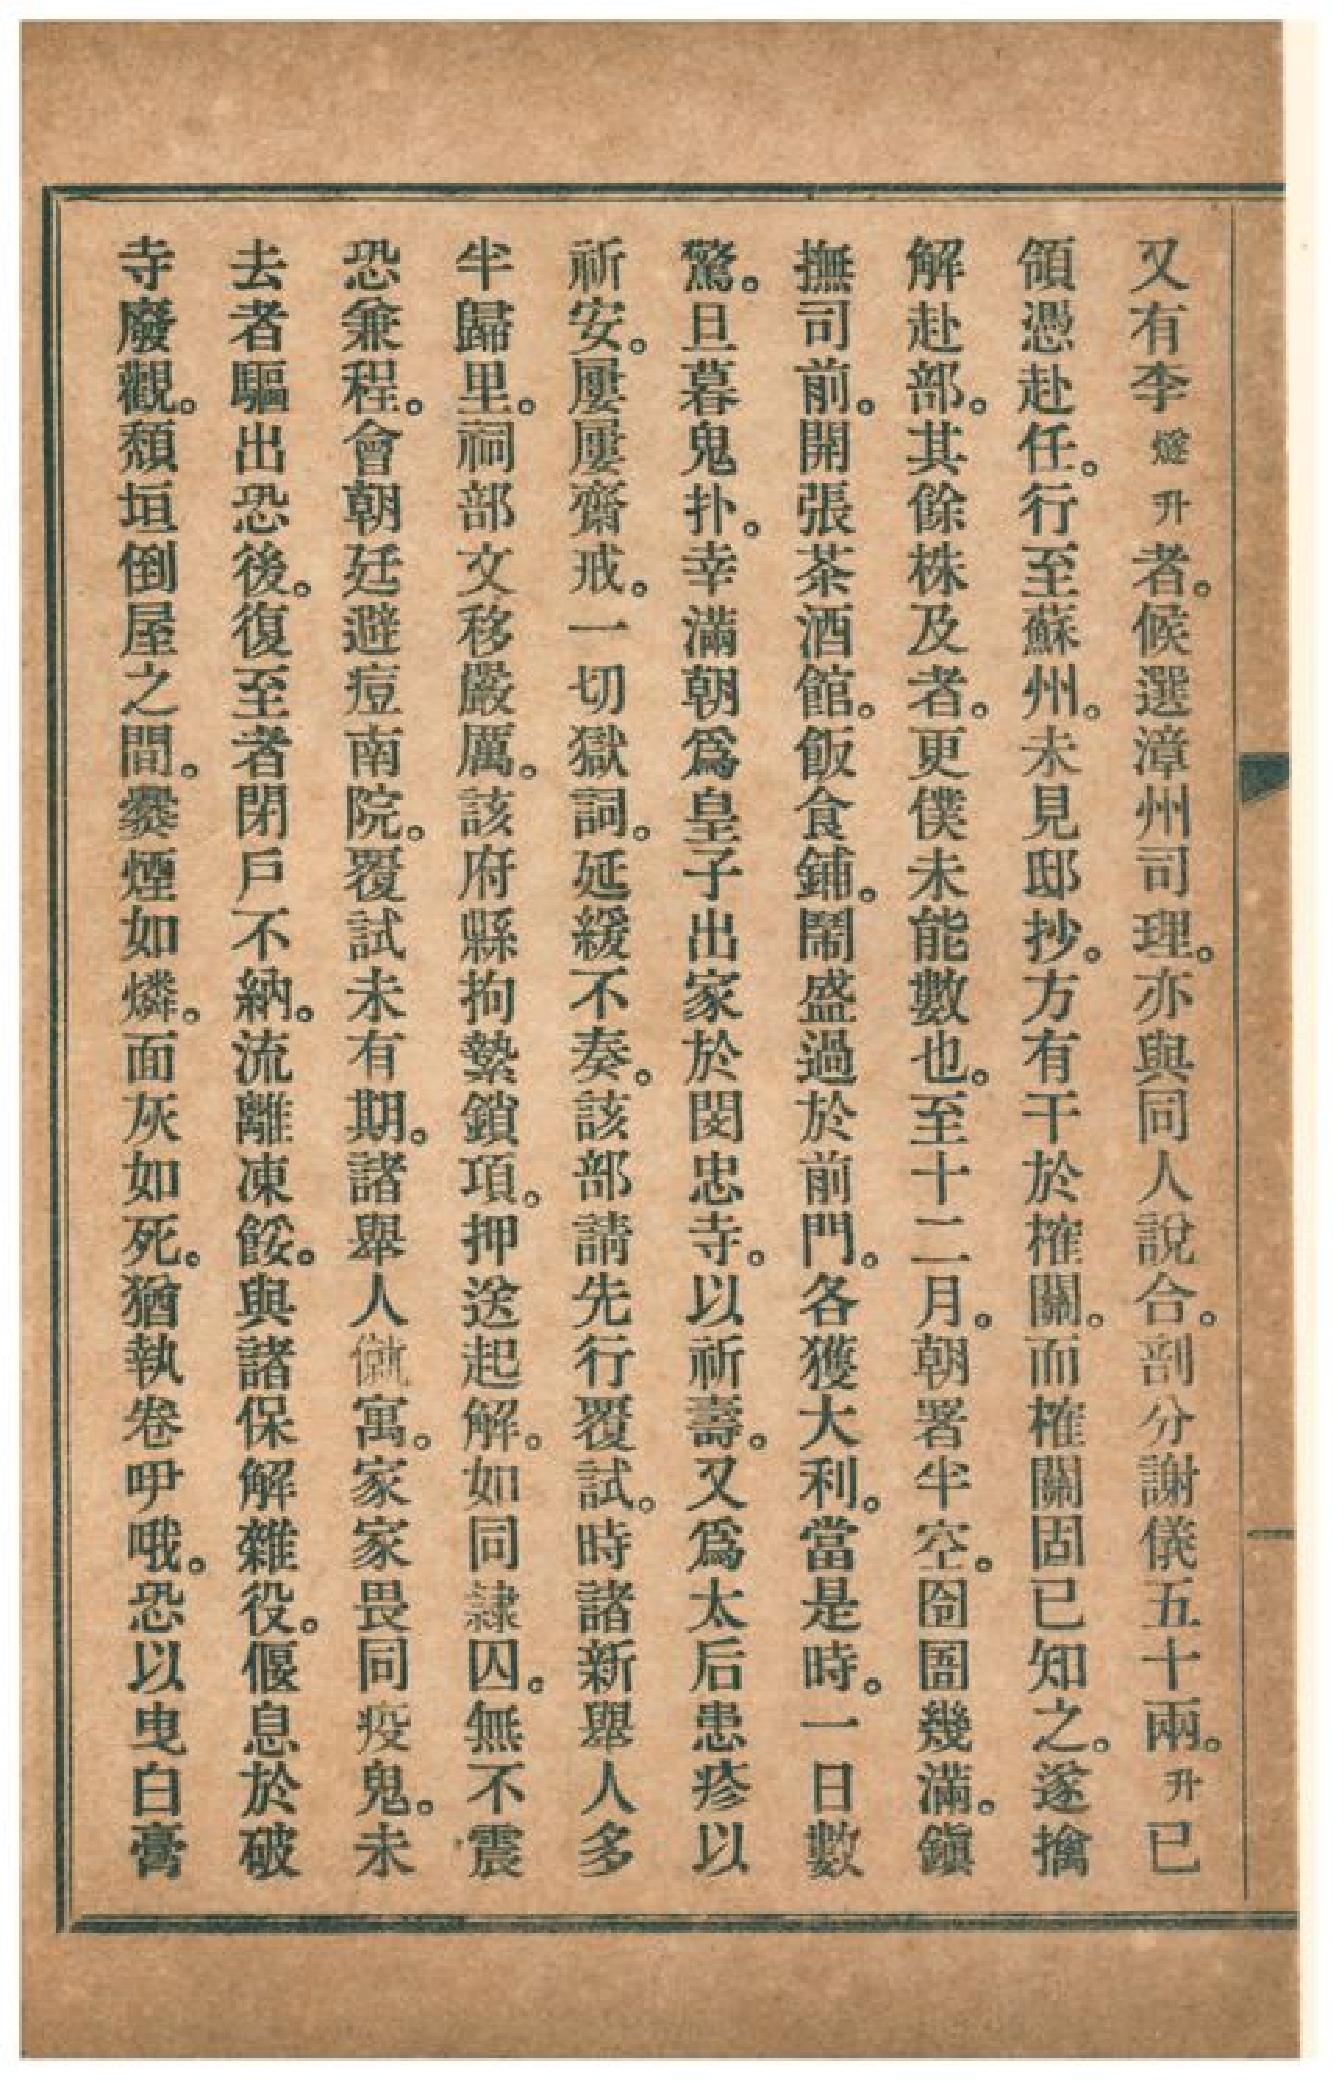 又有李燧升者。候選漳州司理。亦與同人說合。剖分謝儀五十兩。升已
領憑赴任。行至蘇州。未見邸抄。方有干於榷關。而榷關固已知之。遂擒
解赴部。其餘株及者。更僕未能數也。至十二月。朝署半空。囹圄幾滿。鎭
撫司前。開張茶酒館。飯食鋪。鬧盛過於前門。各獲大利。當是時。一日數
驚。旦暮鬼扑。幸滿朝爲皇子出家於閔忠寺。以祈壽。又爲太后患疹以
祈安。屢屢齋戒。一切獄詞。延緩不奏。該部請先行覆試。時諸新舉人多
半歸里。祠部文移嚴厲。該府縣拘縶鎖項。押送起解。如同隸囚。無不震
恐兼程。會朝廷避痘南院。覆試未有期。諸舉人僦寓。家家畏同疫鬼。未
去者驅出恐後。復至者閉戶不納。流離凍餒。與諸保解雜役。偃息於破
寺廢觀。頽垣倒屋之間。爨煙如燐。面灰如死。猶執卷吚哦。恐以曳白膏